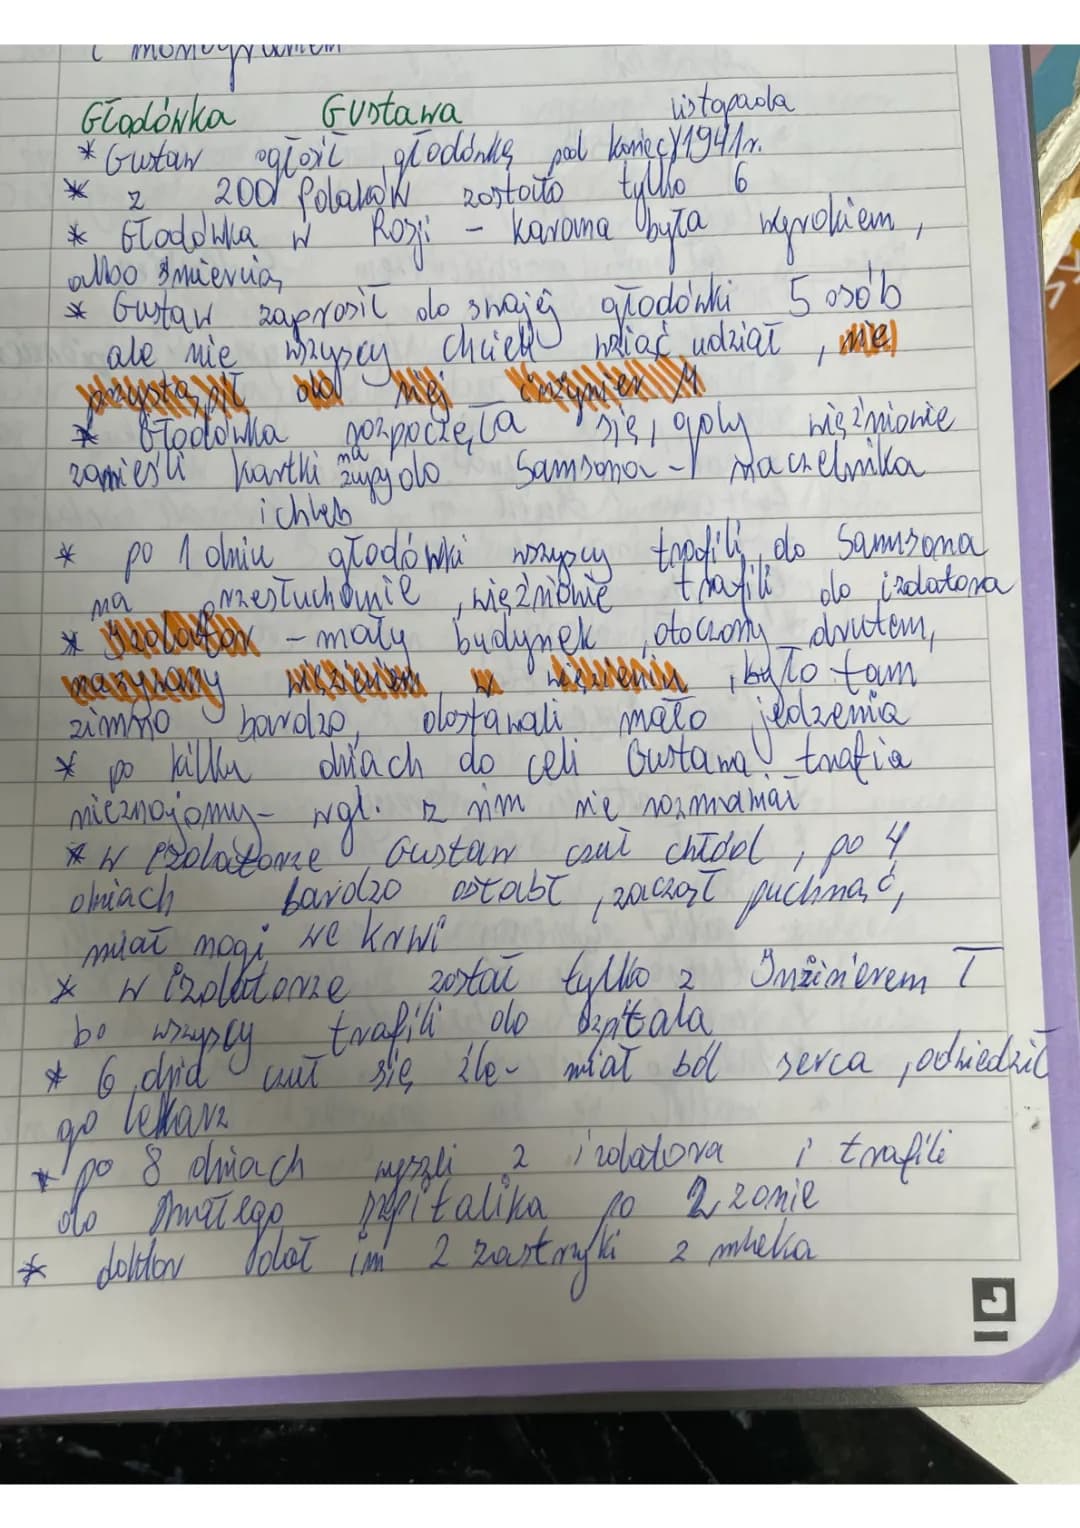 i monogramem
Głodówka Gustawa listopada
* Gustaw ogłosił głodówkę pod koniec 1941r.
* z 200 Polaków zostało tylko 6
* Głodówka w Rosji - karana była wyrokiem,
albo śmiercią
* Gustaw zaprosił do swojej głodówki 5 osób
ale nie wszyscy chcieli wziąć udział, nie
przystąpił do niej inżynier M
* Głodówka rozpoczęła się, gdy więźniowie
zanieśli kartki na zupę do Samsona - naczelnika
i chleb
* po 1 dniu głodówki wszyscy trafili do Samsona
na przesłuchanie, więźniowie trafili do izolatora
* Izolator - mały budynek, otoczony drutem,
nazywany więzieniem w więzieniu, było tam
zimno bardzo, dostawali mało jedzenia
* po kilku dniach do celi Gustawa trafia
nieznajomy - wgl. z nim nie rozmawiał
* w izolatorze Gustaw czuł chłód, po 4
dniach bardzo osłabł, zaczął puchnąć,
miał nogi we krwi
* w izolatorze został tylko z Inżinierem T
bo wszyscy trafili do szpitala
* 6 dnia czuł się źle - miał ból serca, odwiedził
go lekarz
* po 8 dniach wyszli z izolatora i trafili
do małego szpitalika po 2 zonie
* doktor dał im 2 zastrzyki z mleka